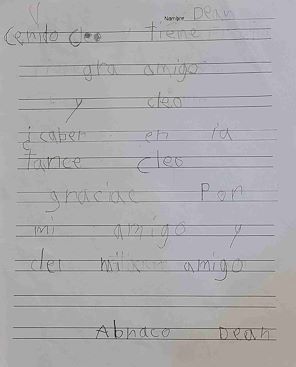 Nombre Dean
Cerido Cleo tiene
gra amigo
y cleo
icaber en la
tance cleo
graciac Por
mi amigo y
del amigo
Abnaco Dean